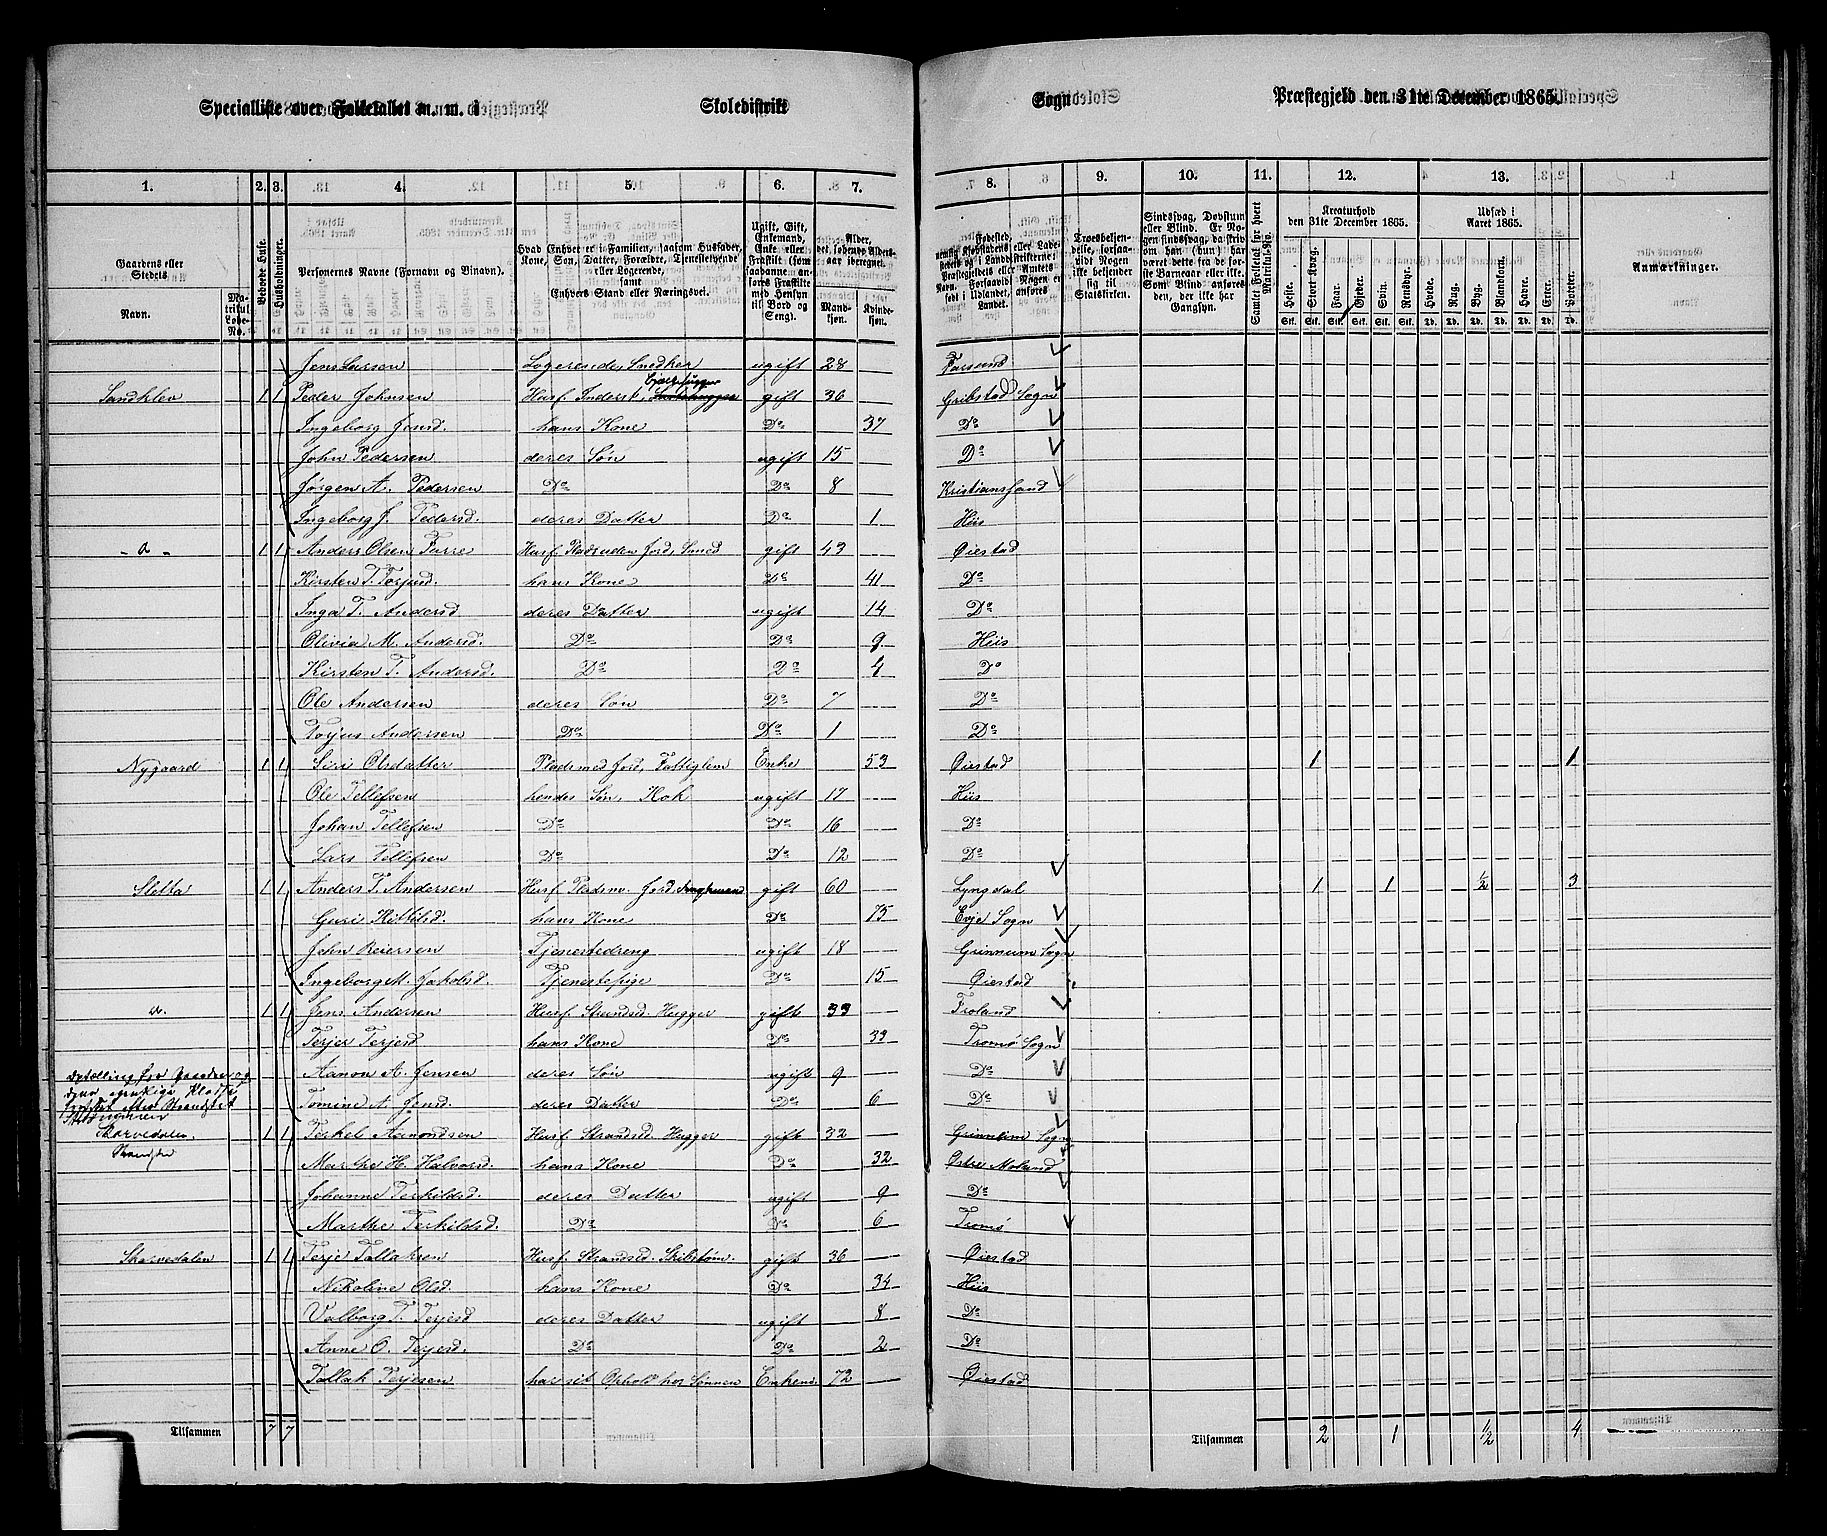 Specialliste over Folketallet m. m. i Skoledistrikt Sogn Præstegjeld den 31te December 1865.
1. 2. 3. 4. 5. 6. 7. 8. 9. 10. 11. 12. 13.
Gaardens eller Stedets Navn. Matrikul Løbe-No. Beboede Huse. Husholdninger. Personernes Navne (Fornavn og Binavn).
Hvad Enhver er i Familien, saasom Husfader, Kone, Søn, Datter, Forældre, Tjenestetyende eller Logerende, samt Enhvers Stand eller Næringsvei.
Ugift, Gift, Enkemand, Enke eller Fraskilt (som saadanne anføres Fraskilte med Hensyn til Bord og Seng).
Alder, det løbende Aldersaar iberegnet. Mandkjøn. Kvindekjøn.
Troesbekjendelse, forsaavidt Nogen ikke bekjender sig til Statskirken.
Sindssvag, Døvstum eller Blind.
Samlet Folketal for hvert Matrikul-No.
Kreaturhold den 31te December 1865. Heste. Stort Kvæg. Faar. Gjeder. Svin. Rensdyr.
Udsæd i Aaret 1865. Hvede. Rug. Byg. Blandkorn. Havre. Erter. Poteter.
Anmærkninger.
Jens Larsen Logerende, Snedker ugift 28 Farsund
Sandklev 1 1 Peder Johnsen Husf. Inderst, gift 36 Gribstad Sogn
Ingeborg Jensd. hans Kone Do 37 Do
John Pedersen deres Søn ugift 15 Do
Jørgen A. Pedersen Do Do 8 Kristianssand
Ingeborg J. Pedersd. deres Datter Do 1 Hiis
- " - 1 1 Anders Olsen Furre Husf. Pladsuden Jord, Smed gift 43 Øiestad
Kirsten T. Terjesd. hans Kone Do 41 Do
Inga T. Andersd. deres Datter ugift 14 Do
Olivia M. Andersd. Do Do 9 Hiis
Kirsten T. Andersd. Do Do 4 Do
Ole Andersen deres Søn Do 7 Do
Torjus Andersen Do Do 1 Do
Nygaard 1 1 Siri Olsdatter Plads med Jord, Fattiglem Enke 53 Øiestad 1 1
Ole Tellefsen hendes Søn, Kok ugift 17 Hiis
Johan Tellefsen Do Do 16 Do
Lars Tellefsen Do Do 12 Do
Sletta 1 1 Anders T. Andersen Husf. Pladsm. Jord gift 60 Lyngdal 1 1 ½ 3
Guri Kittilsd. hans Kone Do 75 Evje Sogn
John Reiersen Tjenestedreng ugift 18 Grinneim Sogn
Ingeborg M. Jakobsd. Tjenestepige Do 15 Øiestad
" 1 1 Jens Andersen Husf. Strandsd. Hugger gift 33 Froland
Terjer Terjesd. hans Kone Do 33 Tromø Sogn
Aanon A. Jensen deres Søn ugift 9 Do
Tomine A. Jensd. deres Datter Do 6 Do
Skarvedalen 1 1 Terkel Aamondsen Husf. Strandsd. Hugger gift 32 Grinneim Sogn
Marthe H. Halvorsd. hans Kone Do 32 Østre Moland
Johanne Terkildsd. deres Datter ugift 9 Do
Marthe Terkildsd. Do Do 6 Tromø
Skarvedalen 1 1 Terje Tallaksen Husf. Strandsd. Skibstøm. gift 36 Øiestad
Nikoline Olsd. hans Kone Do 34 Hiis
Valborg T. Terjesd deres Datter ugift 8 Do
Anne O. Terjesd. Do Do 2 Do
Tallak Terjesen har sit Ophold hos Sønnen Enkem. 72 Øiestad
Tilsammen 7 7 Tilsammen 2 1 ½ 4